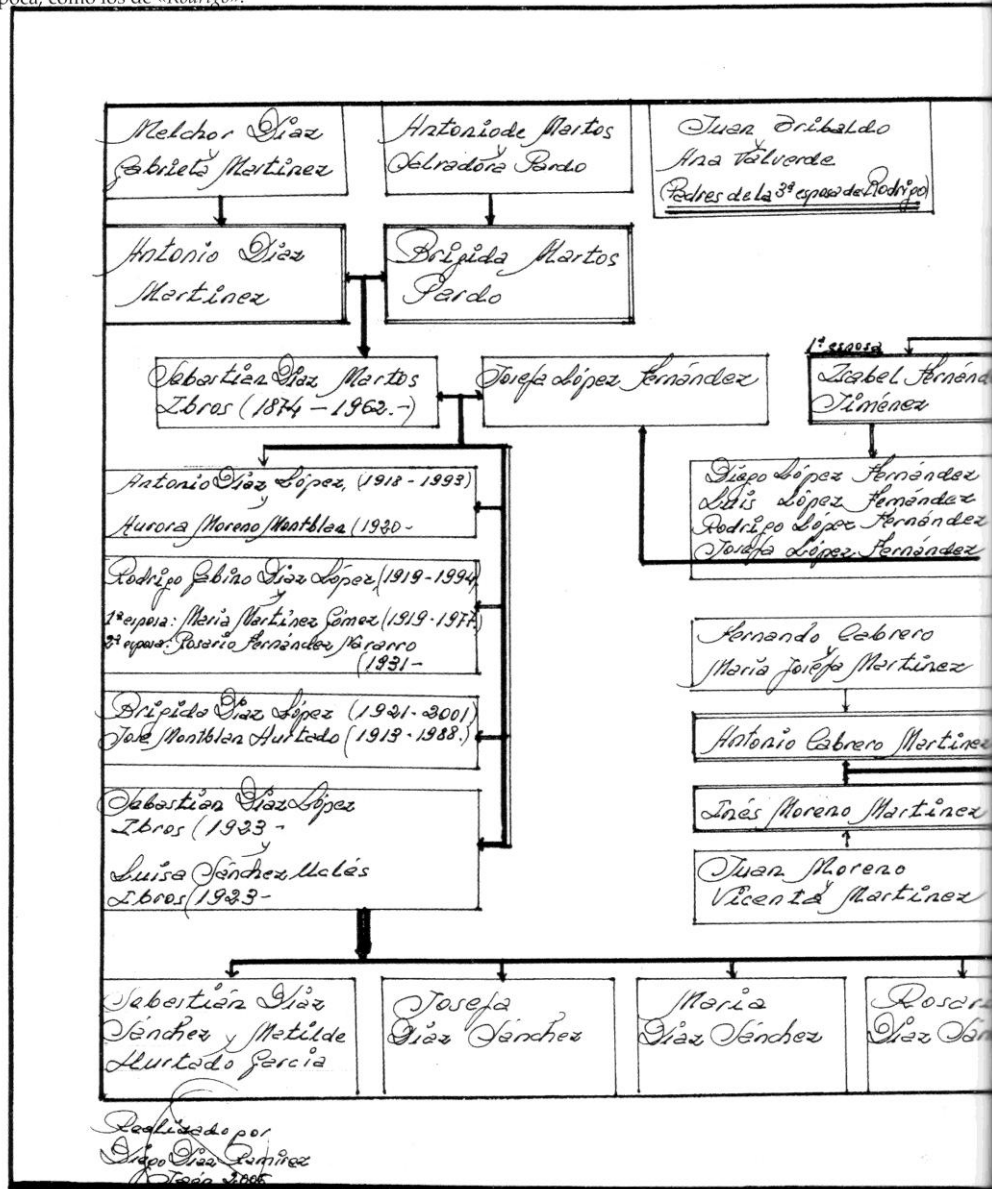 poca, como los de «Rodrigo».
Melchor Diaz
y
Gabriela Martinez
Antonio de Martos
y
Salvadora Pardo
Juan Gribaldo
y
Ana Valverde
(Padres de la 3ª esposa de Rodrigo)
Antonio Diaz
Martinez
Brigida Martos
Pardo
Sebastian Diaz Martos
Ibros (1874 - 1962.-)
Josefa López Fernández
1ª esposa
Isabel Fernánd
Jiménez
Diego López Fernández
Luis López Fernández
Rodrigo López Fernández
Josefa López Fernández
Antonio Diaz López, (1918 - 1993)
y
Aurora Moreno Montblan (1920 -
Rodrigo Gabino Diaz López (1919 - 1994)
y
1ª esposa: Maria Martinez Gómez (1919 - 1977)
2ª esposa: Rosario Fernández Navarro
(1931 -
Brigida Diaz López (1921 - 2001)
José Montblan Hurtado (1913 - 1988.)
Fernando Cabrero
y
Maria Josefa Martinez
Antonio Cabrero Martinez
Inés Moreno Martinez
Juan Moreno
y
Vicenta Martinez
Sebastian Diaz López
Ibros (1923 -
y
Luisa Sánchez
Ibros (1923 -
Sebastián Diaz
Sánchez y Matilde
Hurtado Garcia
Josefa
Diaz Sánchez
Maria
Diaz Sánchez
Rosar
Diaz Sán
Realizado por
Diego Diaz Ramirez
Jaén 2005